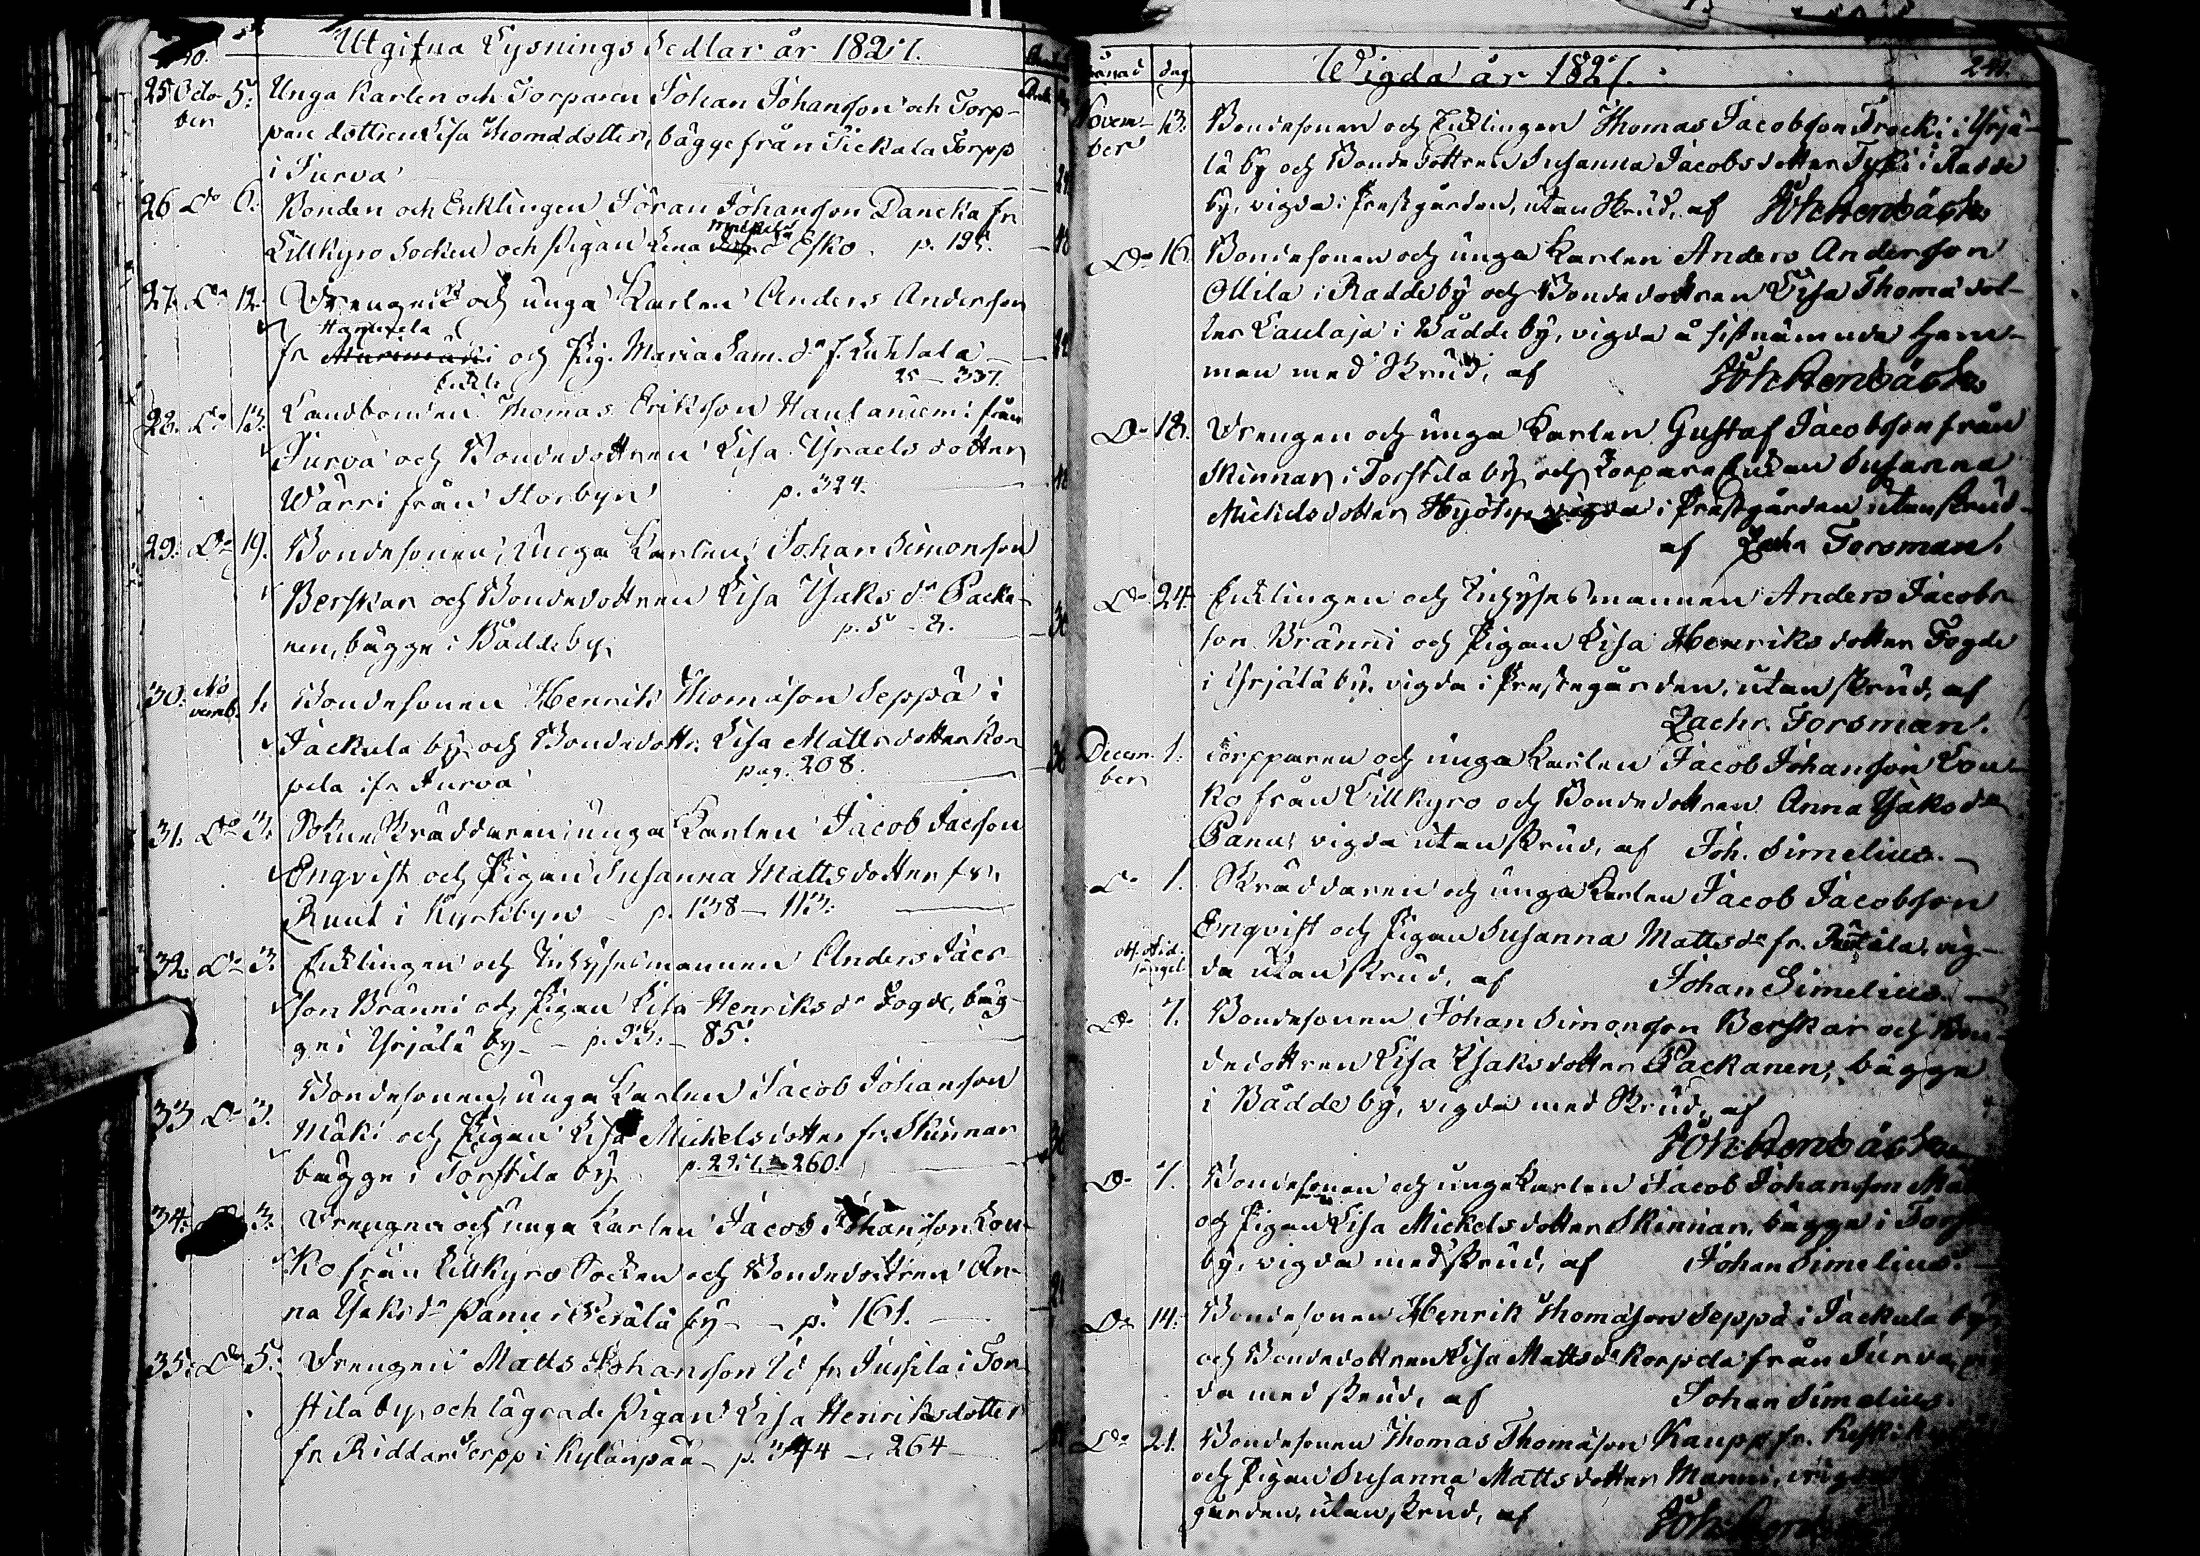 Utgifna Lysnings Sedlar år 1827.
25 Octo- 5. Unga Karlen och Torparen Johan Johansson och Torp-
ber
pare dottren Lisa Thomasdotter, bägge från Tickala Torpp
i Jurva
26 Do 6. Bonden och Enklingen Jöran Johansson Dancka fr
Lillkyro Socken och Pigan Lena Esko p. 195.
27. Do 12. Drengen och unga Karlen Anders Andersson
fr och Pig. Maria Sam. dr f. Luhtala
Enkl. 25 - 337.
28. Do 13. Landbonden Thomas Eriksson Hautaniemi från
Jurva och Bondedottren Lisa Ysraelsdotter
Wärri från Storbyn p. 324.
29. Do 19. Bondesonen, Unga Karlen, Johan Simonsson
Berskar och Bondedottren Lisa Ysaks dr Packa-
nen, bägge i Båddeby, p. 5 - 2.
30. No vemb. 1. Bondesonen Henrik Thomasson Seppä i
Jackula by och Bondedottr. Lisa Mattsdotter Kor
pela ifr Jurva pag. 208.
31. Do 3. Sokne Skräddaren, unga Karlen Jacob Jacsson
Enqvist och Pigan Susanna Mattsdotter fr.
Ruut i Kyrkobyn p. 138 - 113.
32. Do 3. Enklingen och Inhysesmannen Anders Jacs-
son Bränni och Pigan Lisa Henriks dr Fogde, bäg-
ge i Yrjälä by - p. 93. - 85.
33 Do 3. Bondesonen, unga Karlen Jacob Johansson
Mäki och Pigan Lisa Mickelsdotter fr. Skinnar
bägge i Torstila by p. 257. 260.
34. 3. Drengen och unga Karlen Jacob Johansson Lou-
ko från Lillkyro Socken och Bondedottren An-
na Ysaks dr Panu i by - p. 161.
35. Do 5. Drengen Matts Johansson fr Jussila i Tor-
stila by, och lägrade Pigan Lisa Henriksdotter
fr Riddar Torpp i Kylänpää - p. 344 - 264
Månad dag Wigda år 1827. 241.
Novem- 13. Bondesonen och Enklingen Thomas Jacobsson Trocki i Yrjä-
ber
lä by och Bonde dottren Susanna Jacobsdotter i Radde
by, vigda i Prestgården, utan Skrud, af Joh. Stenbäck
Do 16. Bondesonen och unga Karlen Anders Andersson
Ollila i Raddeby och Bondedottren Lisa Thomasdot-
ter Laulaja i Båddeby, vigda å sistnämnde Hem-
man med Skrud, af Joh. Stenbäck
Do 18. Drengen och unga Karlen Gustaf Jacobsson från
Skinnar i Torstila by, och Torpare Enkan Susanna
Mickelsdotter Hyöty, vigda i Prestgården utan skrud
af Zach. Forsman.
Do 24. Enklingen och Inhysesmannen Anders Jacobs-
son Bränni och Pigan Lisa Henriksdotter Fogde
i Yrjälä by, vigda i Prestegården, utan skrud, af
Zachr. Forsman.
Decem- 1. Torpparen och unga Karlen Jacob Johansson Lou-
ber
ko från Lillkyro och Bondedottren Anna Ysaks dr
Panu, vigda utan skrud, af Joh. Simelius.
Do 1. Skräddaren och unga Karlen Jacob Jacobsson
Enqvist och Pigan Susanna Matts dr fr. Ruutala, vig-
da utan skrud, af Johan Simelius.
Do 7. Bondesonen Johan Simonsson Berskar och Bon-
dedottren Lisa Ysaksdotter Packanen, bägge
i Båddeby, vigda med Skrud, af
Joh. Stenbäck
Do 7. Bondesonen och unge Karlen Jacob Johansson
och Pigan Lisa Mickelsdotter Skinnar, bägge i
by, vigda med skrud, af Johan Simelius.
Do 14. Bondesonen Henrik Thomasson Seppä i Jackula by
och Bondedottren Lisa Matts dr Korpela från Jurva,
da med skrud, af Johan Simelius.
Do 21. Bondesonen Thomas Thomasson Kaupp fr.
och Pigan Susanna Mattsdotter Manni,
gården, utan skrud, af Joh.